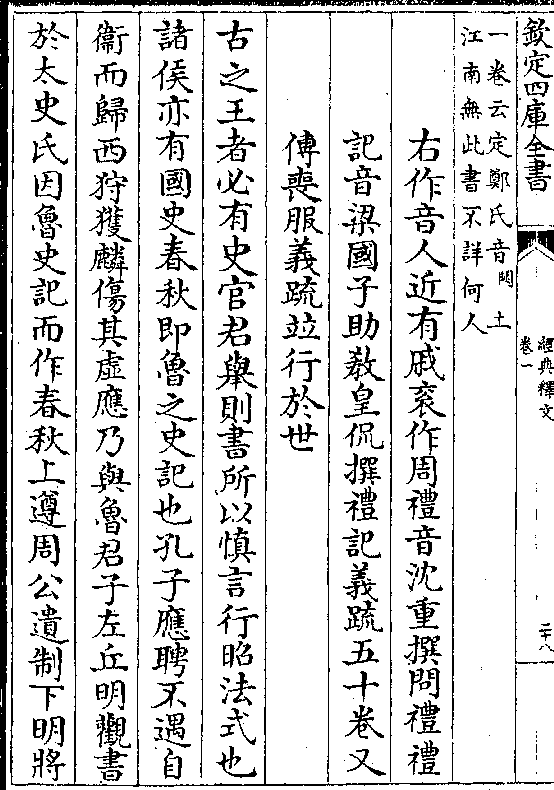 欽定四庫全書
經典釋文
卷一
二十八
一卷云定鄭氏音闕土
江南無此書不詳何人
右作音人近有戚衮作周禮音沈重撰問禮禮
記音梁國子助教皇侃撰禮記義疏五十卷又
傳喪服義疏竝行於世
古之王者必有史官君舉則書所以慎言行昭法式也
諸侯亦有國史春秋即魯之史記也孔子應聘不遇自
衞而歸西狩獲麟傷其虛應乃與魯君子左丘明觀書
於太史氏因魯史記而作春秋上遵周公遺制下明將